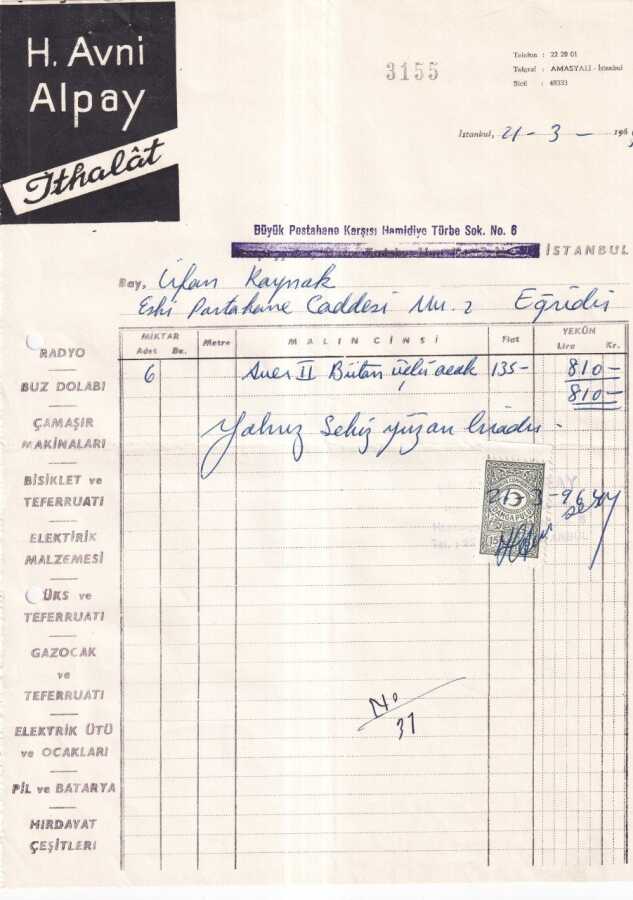 H. Avni
Alpay
İthalât
3155
Telefon : 22 20 01
Telgraf : AMASYALI - İstanbul
Sicil : 48333
İstanbul, 21 - 3 - 196
Büyük Postahane Karşısı Hamidiye Türbe Sok. No. 6
İSTANBUL
Bay, İrfan Kaynak
Eski Postahane Caddesi Nu. 2 Eğridir
MİKTAR
Adet Be.
Metre
MALIN CİNSİ
Fiat
YEKÛN
Lira Kr.
6 Auer II Bütan üçlü ocak 135- 810-
810-
Yalnız Sekiz yüz on liradır.
RADYO
BUZ DOLABI
ÇAMAŞIR
MAKİNALARI
BİSİKLET ve
TEFERRUATI
ELEKTİRİK
MALZEMESİ
LÜKS ve
TEFERRUATI
GAZOCAK
ve
TEFERRUATI
ELEKTRİK ÜTÜ
ve OCAKLARI
PİL ve BATARYA
HIRDAVAT
ÇEŞİTLERİ
DAMGA PULU
21-3-964
No
37